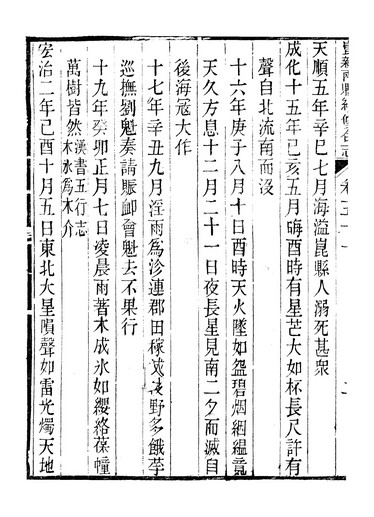 崑新兩縣續修合志　卷五十一
天順五年辛巳七月海溢崑縣人溺死甚衆
成化十五年己亥五月晦酉時有星芒大如杯長尺許有
聲自北流南而沒
十六年庚子八月十日酉時天火墜如盌碧烟絪縕竟
天久方息十二月二十一日夜長星見南二夕而滅自
後海寇大作
十七年辛丑九月淫雨為沴連郡田稼野多餓莩
巡撫劉魁奏請賑卹會魁去不果行
十九年癸卯正月七日凌晨雨著木成氷如纓絡葆幢
萬樹皆然漢書五行志木氷為木介
宏治二年己酉十月五日東北大星隕聲如雷光燭天地